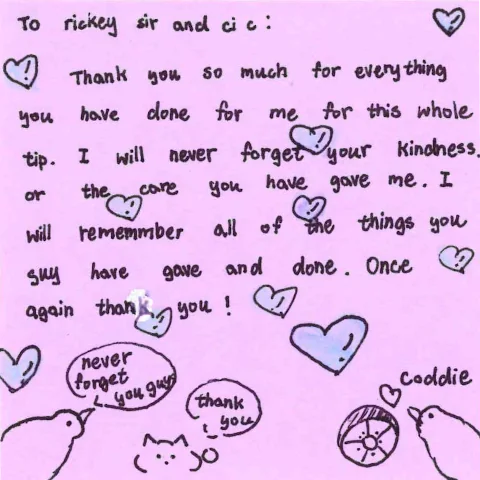 To rickey sir and ci c :
Thank you so much for everything
you have done for me for this whole
tip. I will never forget your kindness.
or the care you have gave me. I
will rememmber all of the things you
guy have gave and done. Once
again thank you !
never
forget
you guys
thank
you
coddie